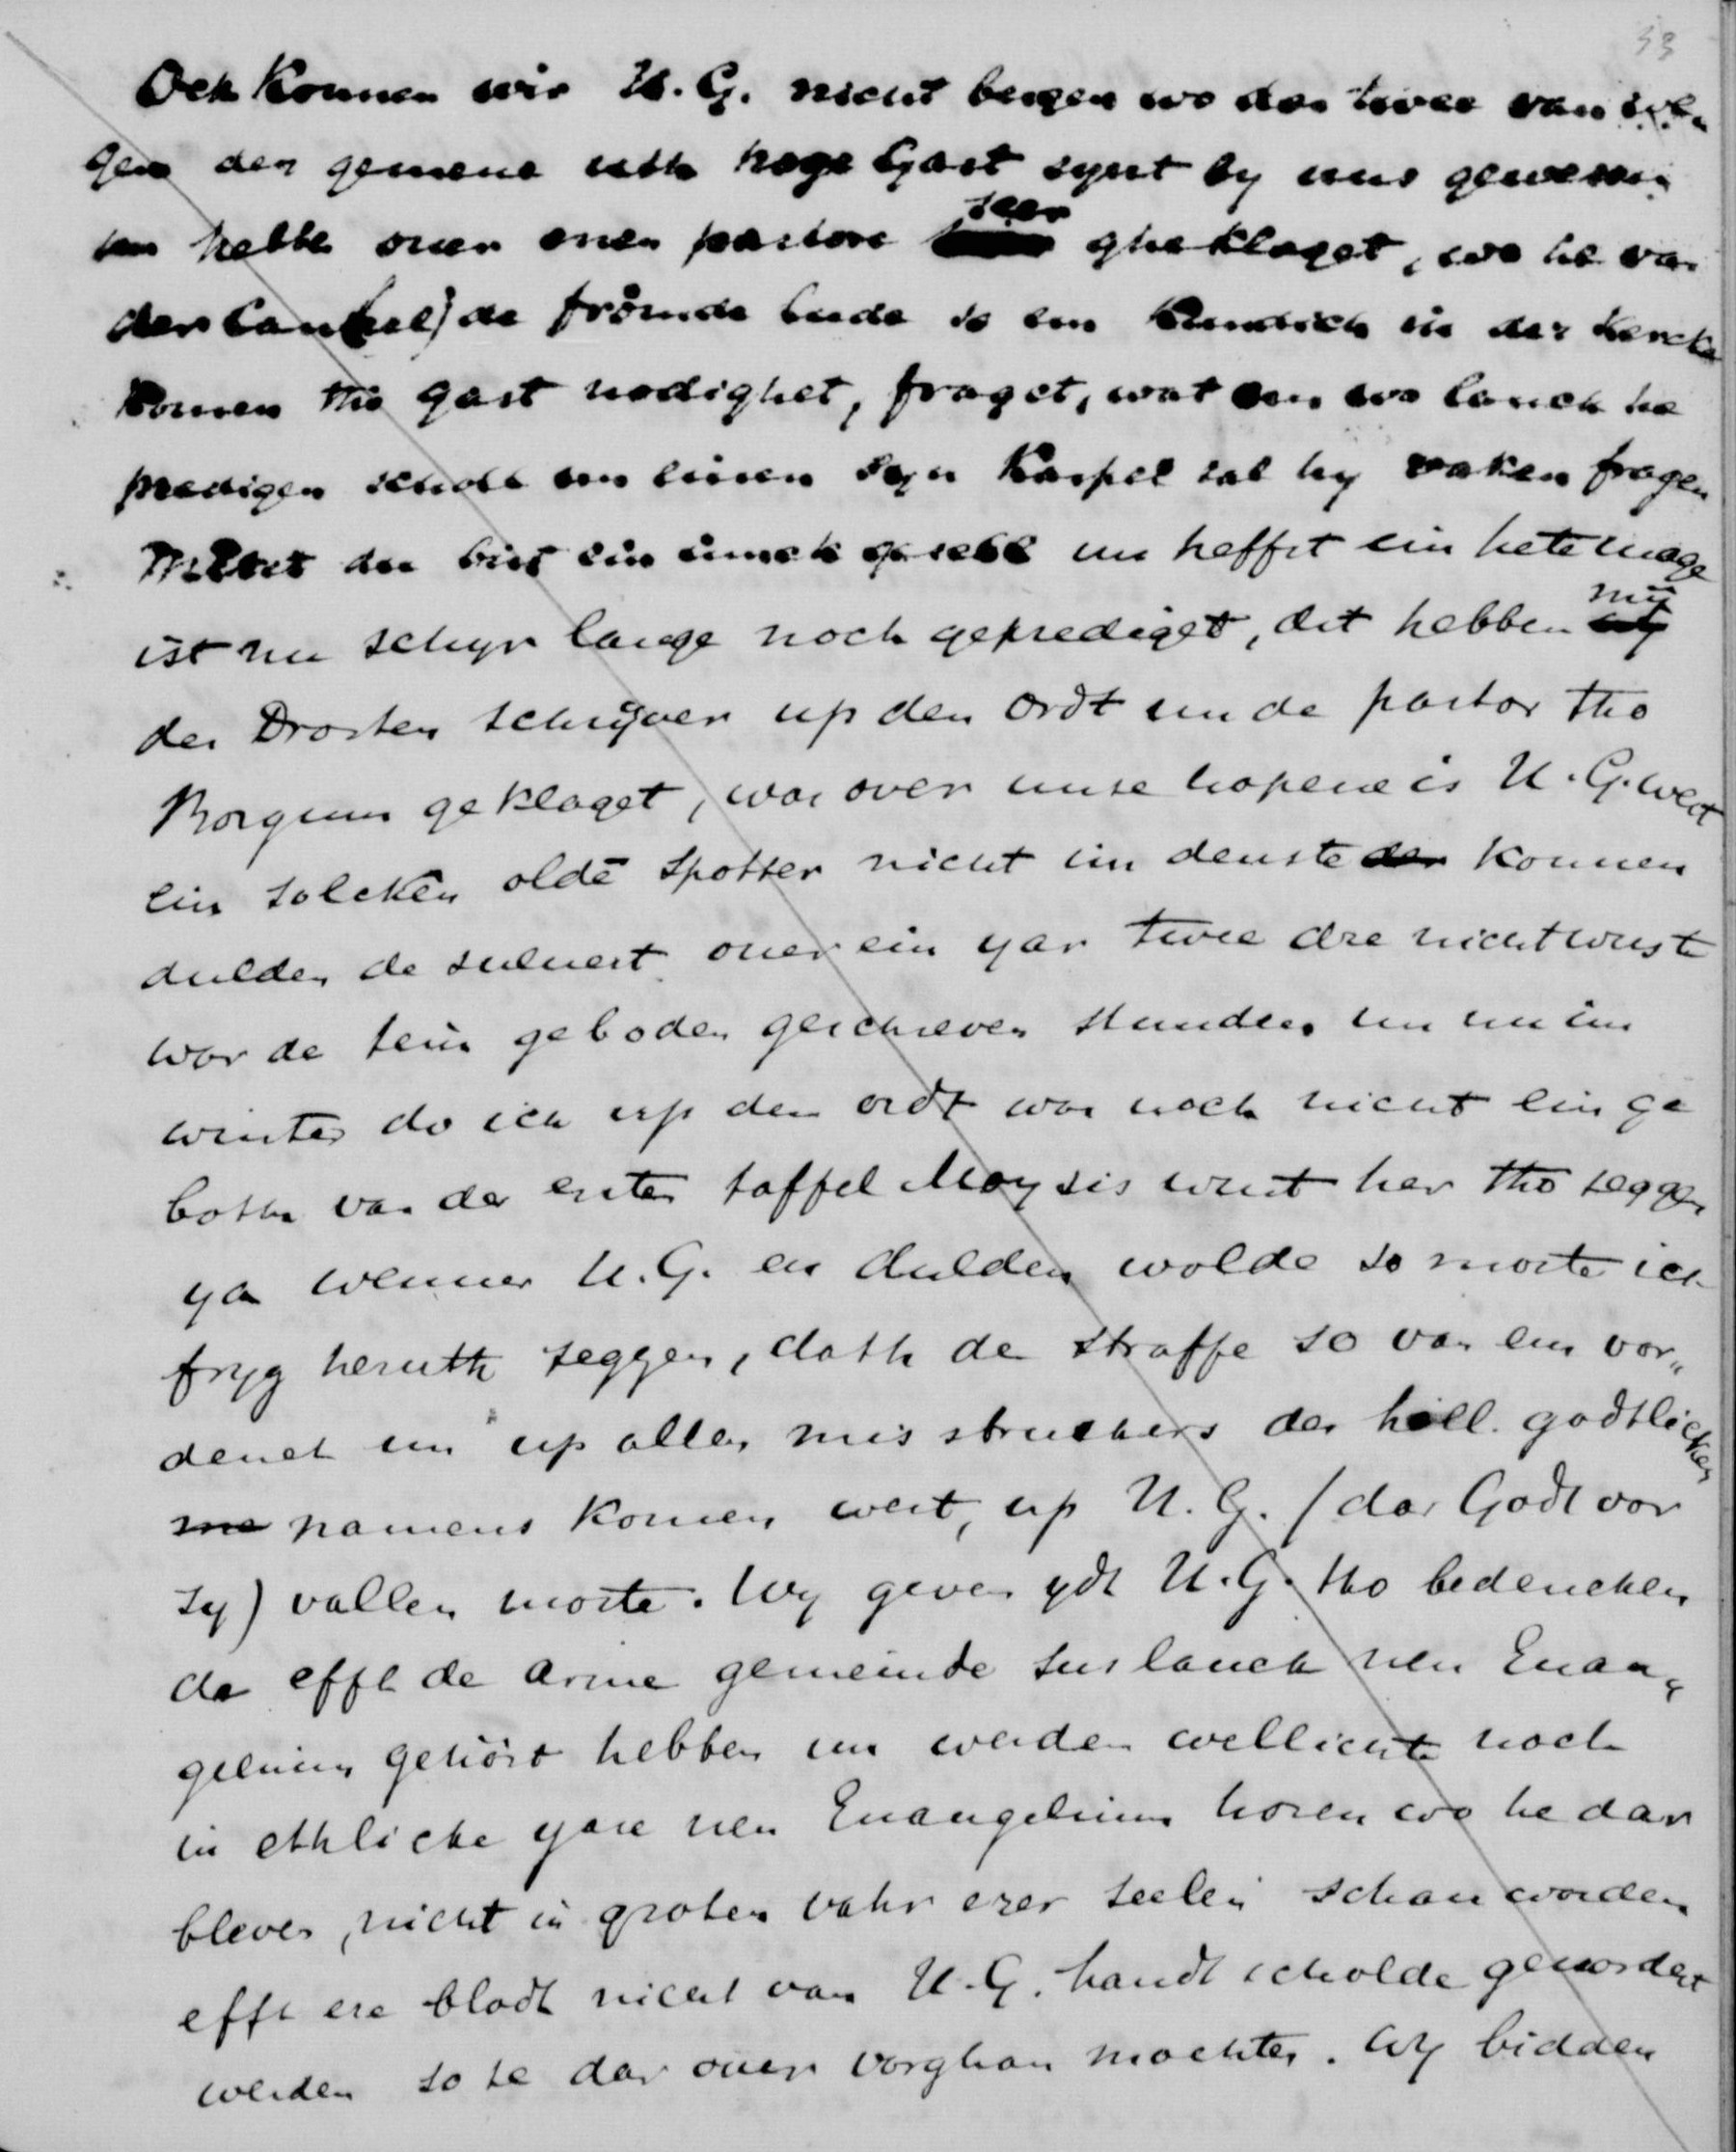 33
Ock konnen wir U. G. nicht bergen wo dar twee van we„
gen der gemene uth hoge Gast synt by uns gewesen
un hebbe over eren pastore seer gheklaget, wo he van
der Cantzel) de frömde lude so em kundich in der kercke
komen tho gast nodighet, fraget, wat un wo lanck he
predigen scholl un einen syn kaspel sal hy vaken fragen
Meltet du bist ein junck gesell un heffst ein hete mage
ist nu schyr lange noch geprediget, dit hebben my
der Drosten schryver up den Ordt un de pastor tho
Borgum geklaget, war over unse hopene is U. G. wert
ein solcken olde spotter nicht im denste der konnen
dulden de sulvest over ein yar twee dre nicht wuste
wor de tein geboden geschreven stunden un nu im
winter do ick up den ordt was noch nicht ein ge
bott van der ersten taffel Moysis wust her tho seggen
ya wenner U. G. en dulden wolde so moste ick
fryg heruth seggen, dath de straffe so van em vor„
denet un up allen misbrukers des hill. godtlicken
me namens komen wert, up U. G. (dar Godt vor
sy) vallen moste. Wy geven ydt U. G. tho bedencken
da efft de arme gemeinde sus lanck nen Euan„
gelium gehört hebben un werden wellicht noch
in ethlicke yare nen Euangelium horen wo he dar
bleven, nicht in groten vahr erer seelen schan worden
efft ere blodt nicht van U. G. handt scholde gevordert
werden so se dar over vorghan mochten. Wy bidden